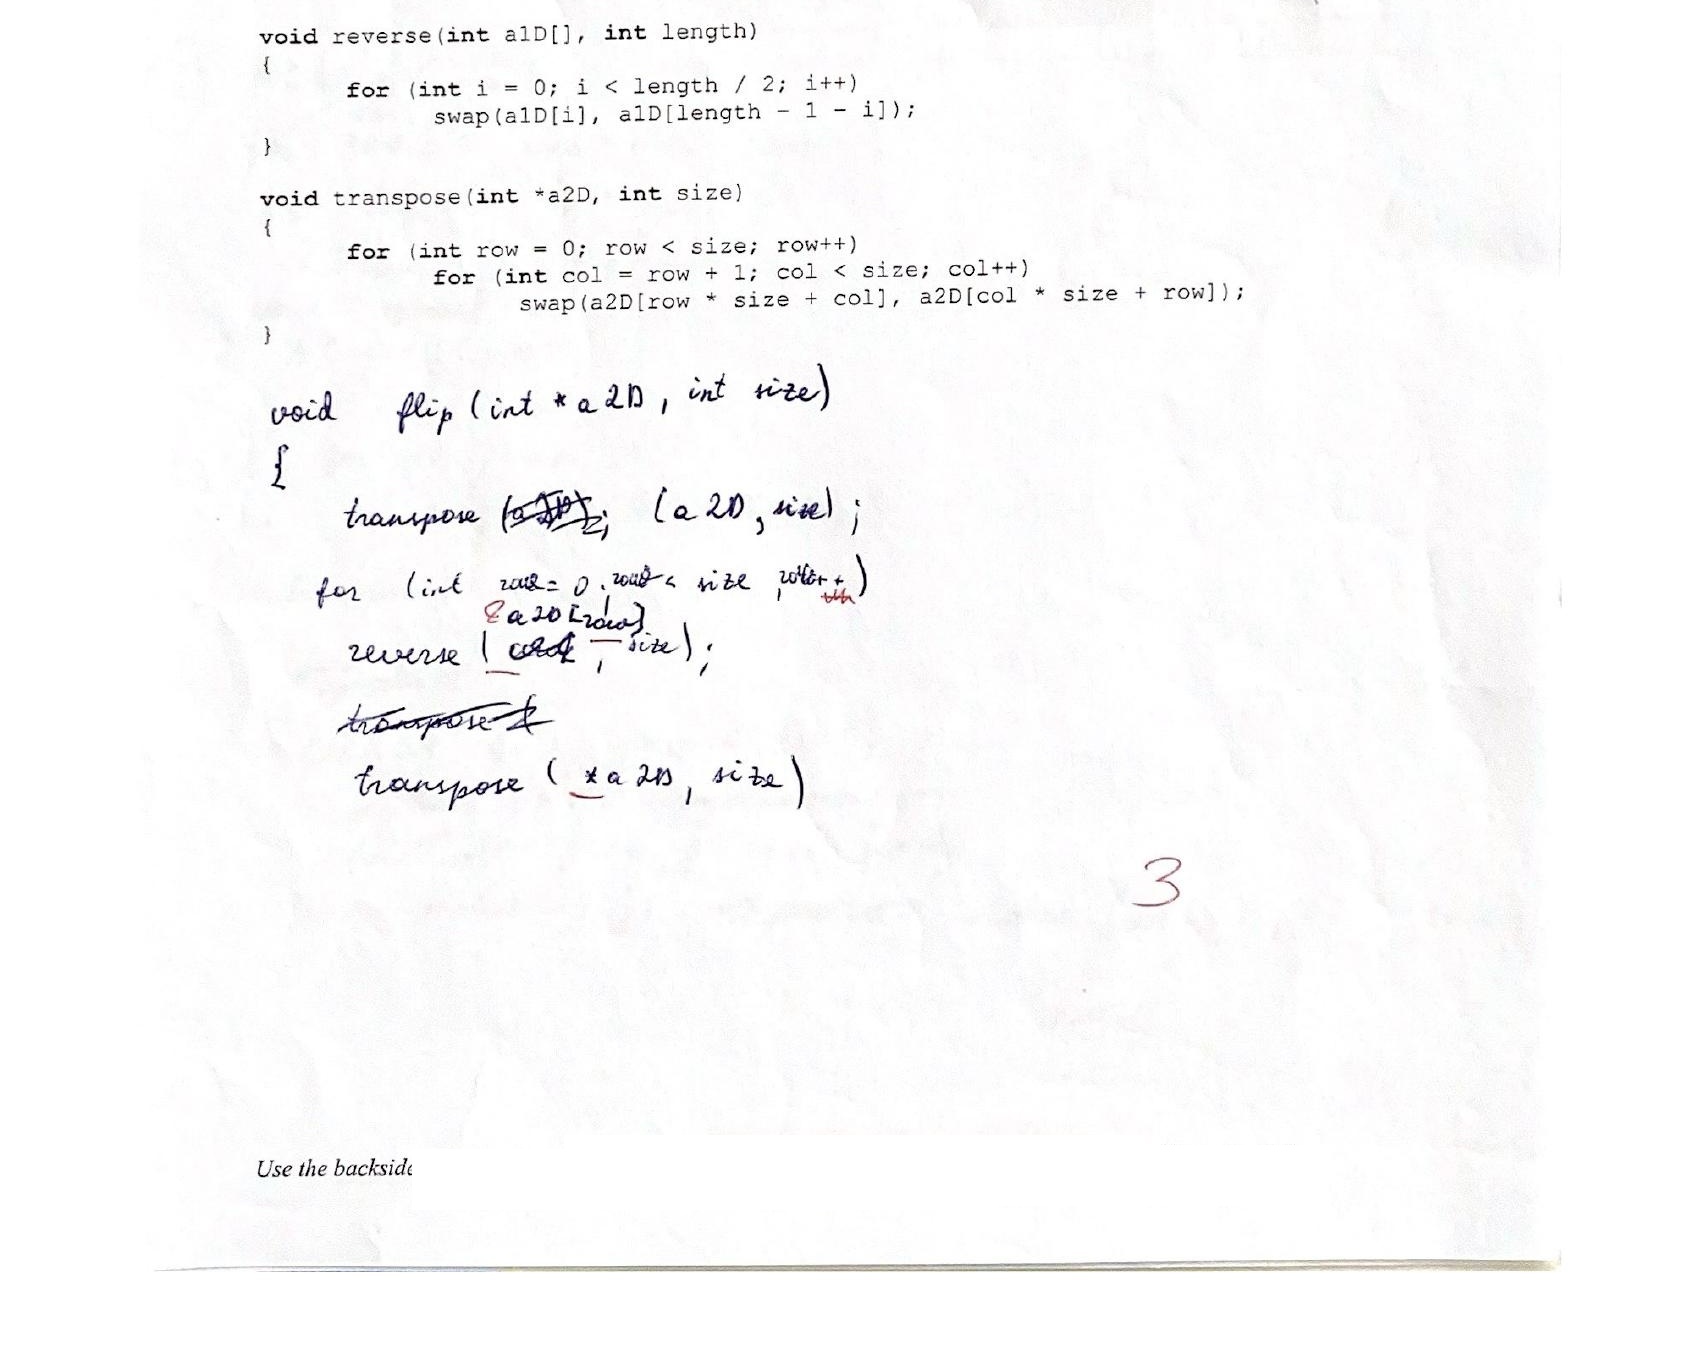 void reverse(int a1D[], int length)
{
for (int i = 0; i < length / 2; i++)
swap(a1D[i], a1D[length - 1 - i]);
}
void transpose(int *a2D, int size)
{
for (int row = 0; row < size; row++)
for (int col = row + 1; col < size; col++)
swap(a2D[row * size + col], a2D[col * size + row]);
}
void flip (int *a2D, int size)
{
transpose (a2D, size);
for (int row = 0; row < size; row++)
&a2D[row]
reverse ( , size);
transpose
transpose (*a2D, size)
3
Use the backside